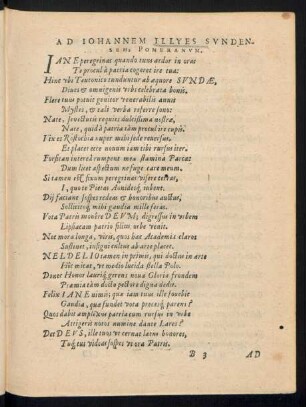 AD IOHANNEM ILLYES SVNDEN-
SEM, POMERANVM.
IANE peregrinas quando tuus ardor in oras
Te procul à patria cogeret ire tua:
Hinc ubi Teutonico tunduntur ab æquore SVNDÆ,
Dives & omnigenis urbs celebrata bonis.
Flere tuus potuit genitor venerabilis annis
Mystes, & tali verba referre sono:
Nate, senectutis requies dulcissima nostræ,
Nate, quid à patria tàm procul ire cupis?
Vix es Ristochio nuper mihi sede reversus,
Et peregre nouum iam tibi rursus iter.
Forsitan interea rumpent mea stamina Parcæ:
Dum licet aspectum ne fuge care meum.
Si tamen est certum peregrinas visere terras,
I, quo te Pietas Aonidesq; iubent.
Dij faciant sospes redeas & honoribus auctus,
Sollicitoq; mihi gaudia mille feras.
Vota Patris mouêre DEUM; digressus in urbem
Lipsiacam patrio filius orbe venit.
Nec mora longa, viris, quos hæc Academia claros
Sustinet, insigni cultus ab arte places.
NELDELIO tamen in primis, qui doctus in arte
Fulget, ut è medio lucida stella Polo.
Donet Honos laurū, gerens noua Christo secundem
Præmia tàm docto pectore digna dedit.
Felix IANE nimis quæ iam tuus ille subibit
Gaudia, quæ sundet vota procerq; parens?
Quos dabis amplexus patriam cum rursus in urbem
Attigeris notos numine dante Lares?
Det DEVS, ille tuos ut cernat lætus honores,
Tuq; tui videas sospes ut ora Patris.
B 3 AD